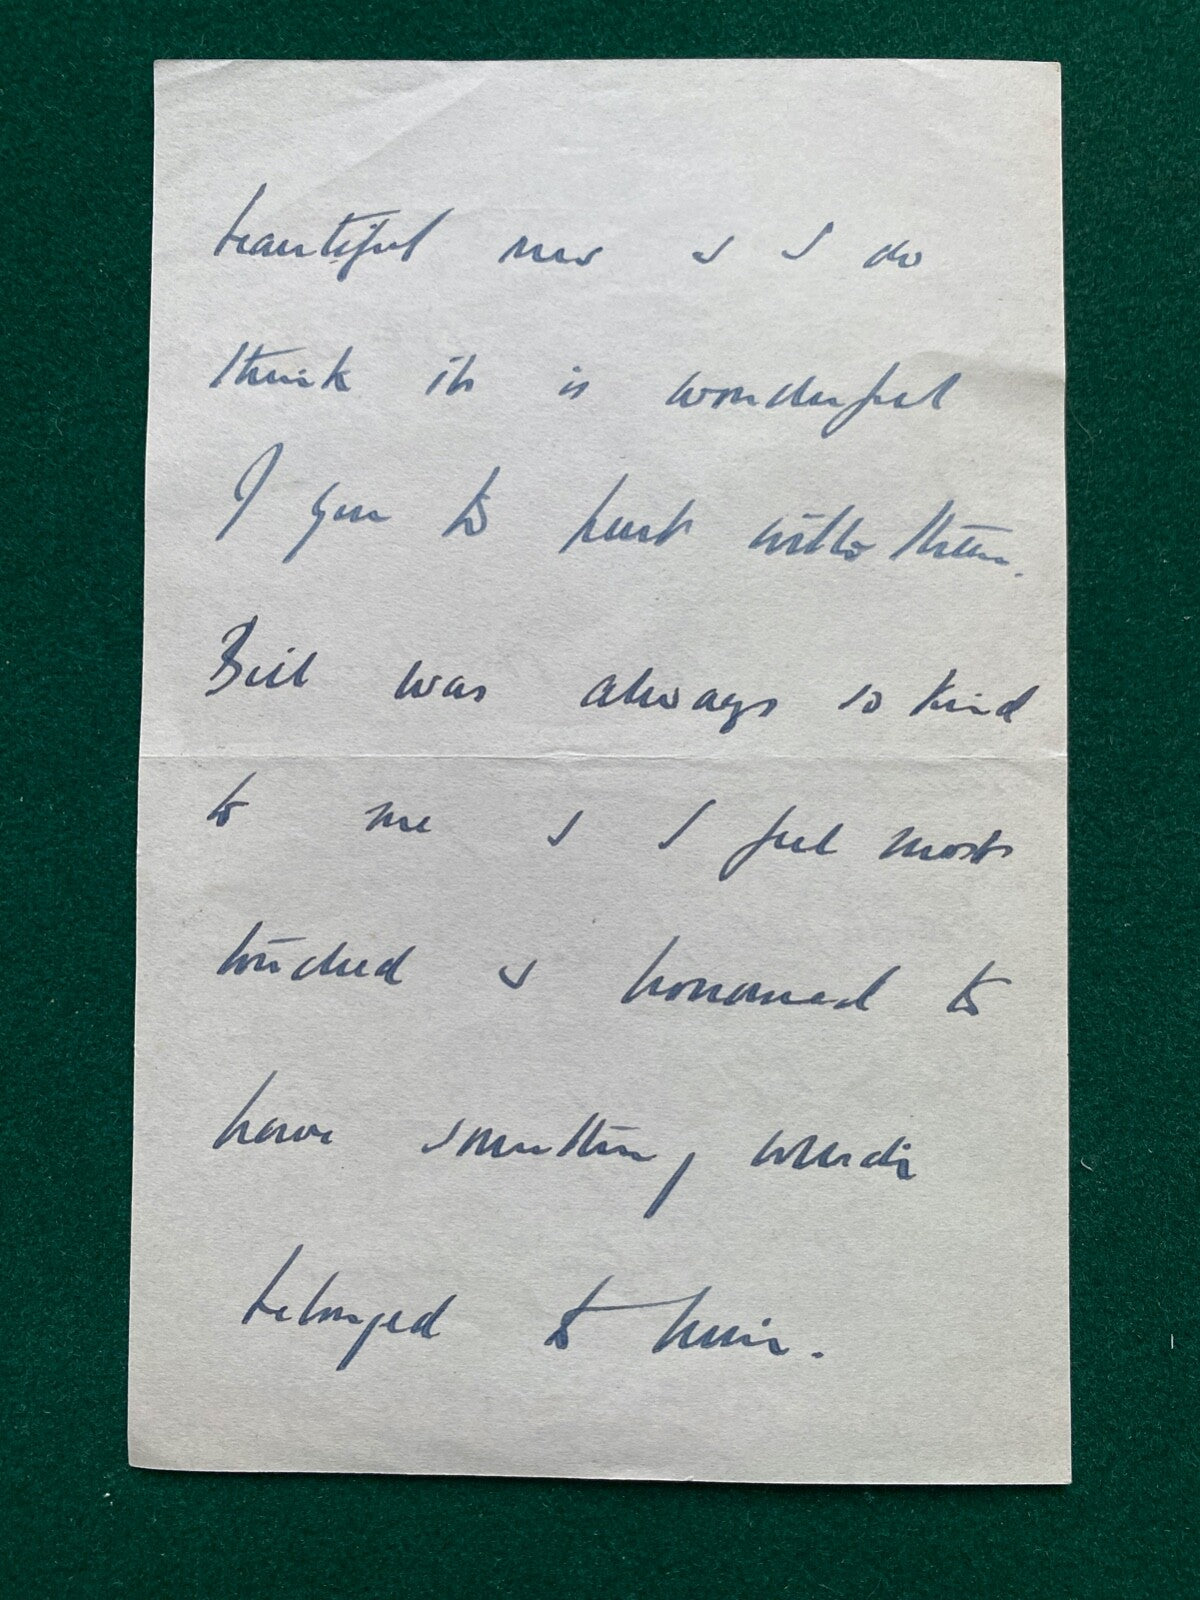 beautiful & I do
think it is wonderful
of you to part with them.
Bill was always so kind
to me & I feel most
touched & honoured to
have something which
belonged to him.